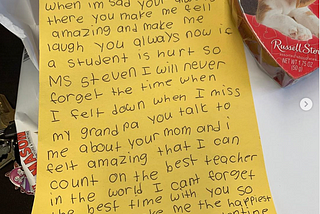 when im sad you always
there you make me fell
amazing and make me
laugh you always now if
a student is hurt so
MS Steven I will never
forget the time when
I felt down when I miss
my grandpa you talk to
me about your mom and i
felt amazing that I can
count on the best teacher
in the world I cant forget
the best time with you so
make me the happiest
Russell Stov
NET WT 1.75 OZ
(50 g)